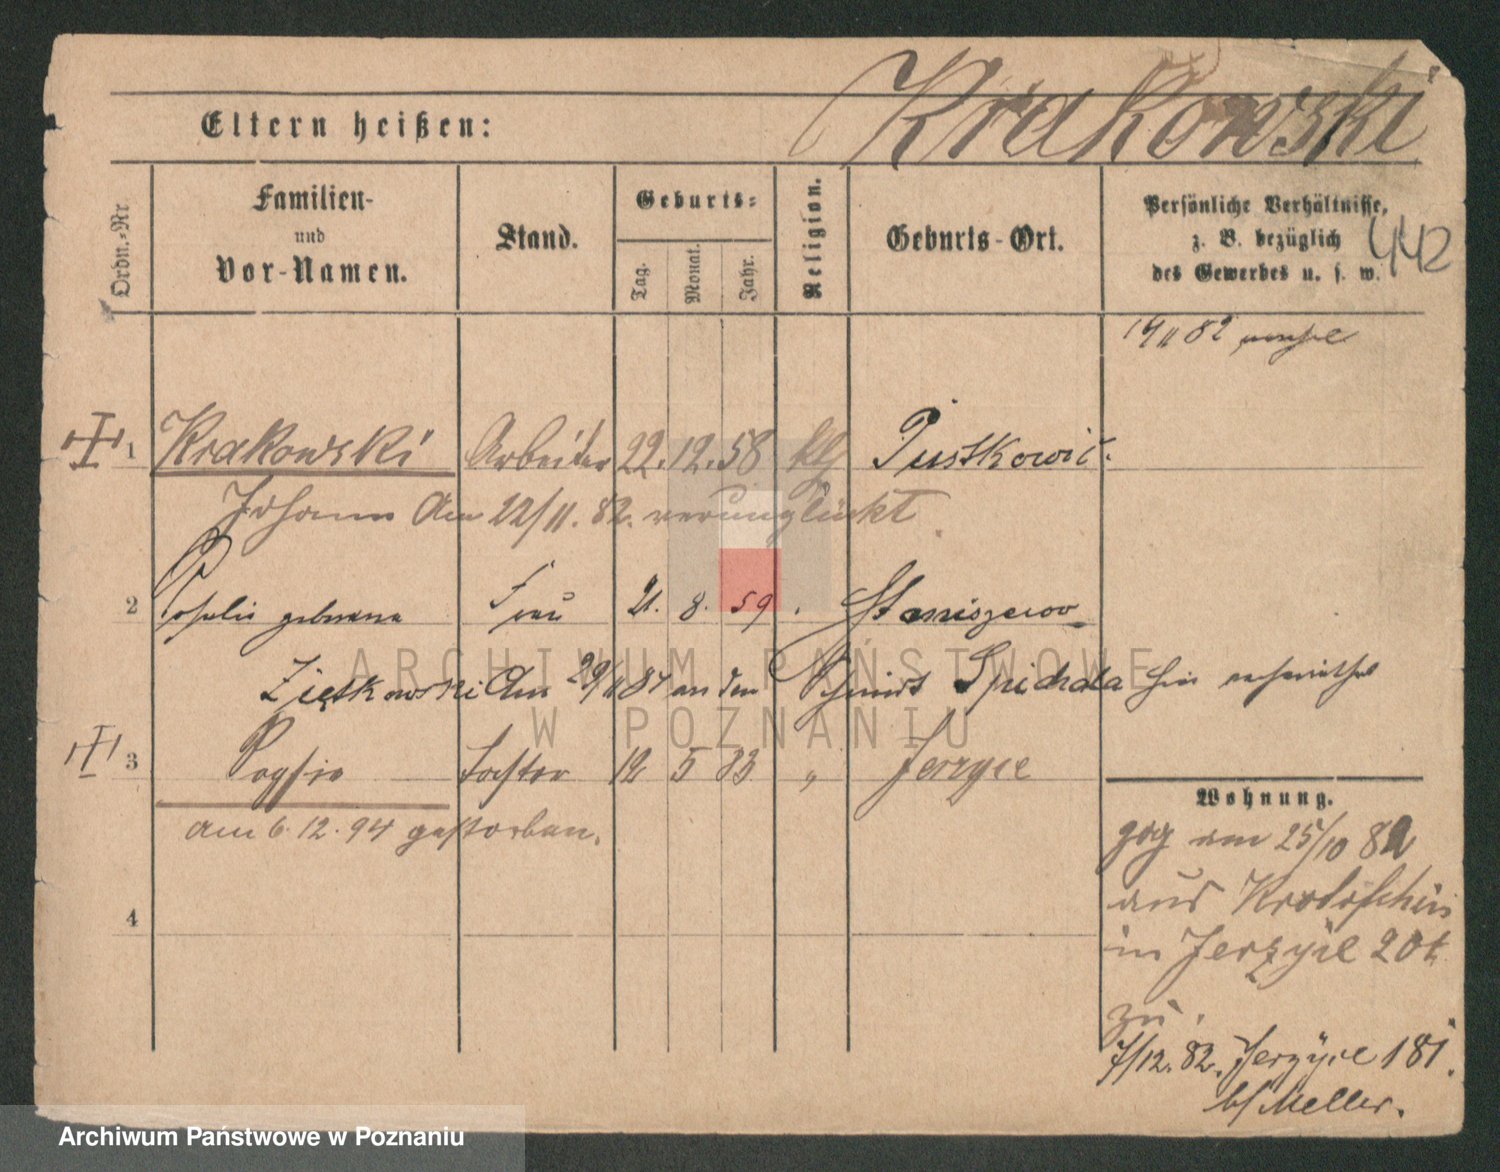 Krakowski
Eltern heißen:
Ordn.-Nr.
Familien-
und
Vor-Namen.
Stand.
Geburts-
Tag.
Monat.
Jahr.
Religion.
Geburts-Ort.
Persönliche Verhältnisse,
z. B. bezüglich
des Gewerbes u. s. w.
442
14/11 82
1 Krakowski Arbeiter 22. 12. 58 kth
Johann Am 22/11. 82. verunglückt
2 geborene Frau 21. 8. 59
Ziętkowski Am 29/11 84 an den Schmidt Spichala hier
3 Tochter 12 5 83 " Jerzyce
am 6. 12. 94 gestorben.
4
Wohnung.
zog am 25/10 82
aus Krotoschin
in Jerzyce 20t
zu.
7/12. 82. Jerzyce 181.
b/ Meller.
ARCHIWUM PAŃSTWOWE
W POZNANIU
Archiwum Państwowe w Poznaniu